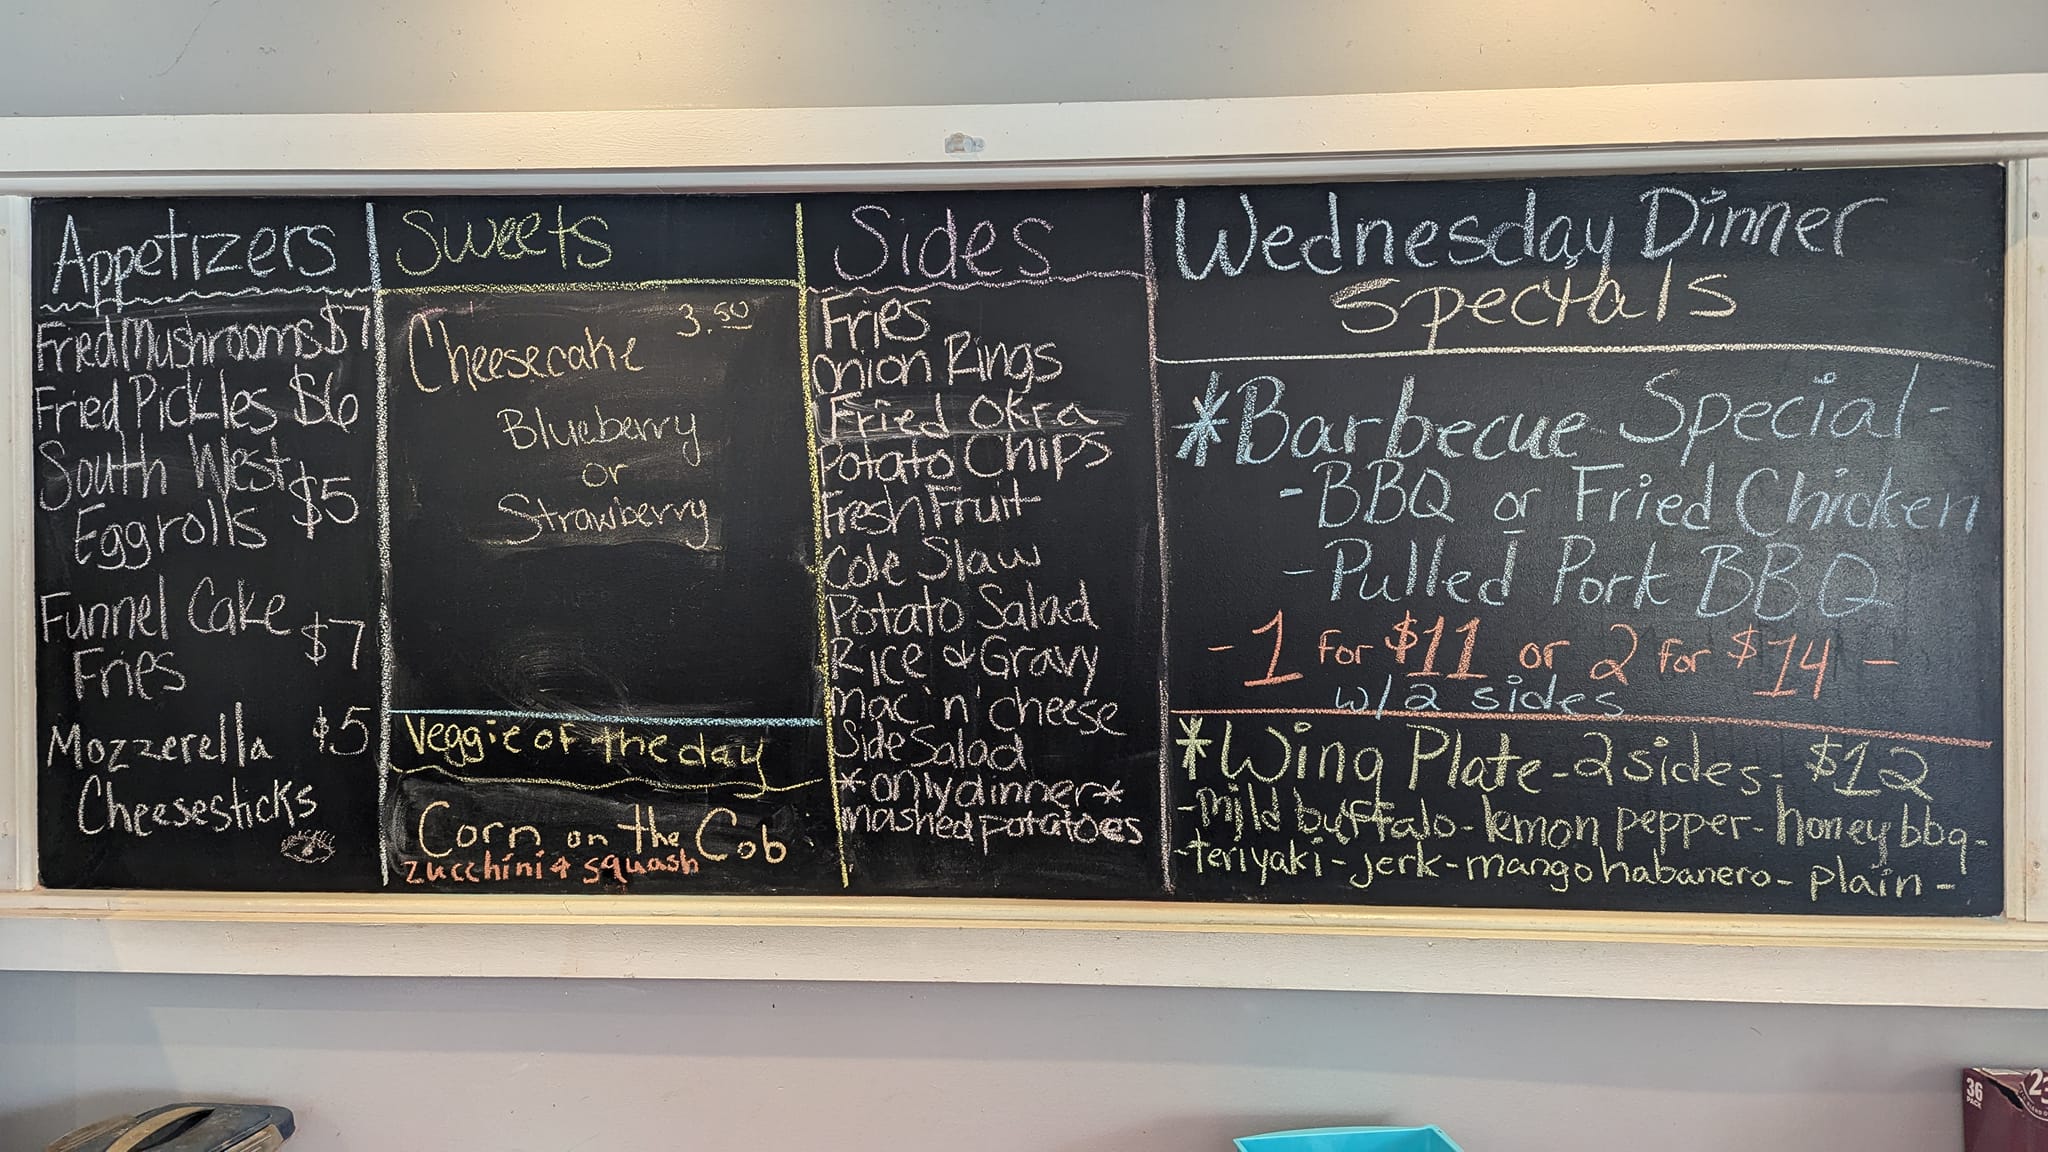 Appetizers
Fried Mushrooms $7
Fried Pickles $6
South West
Eggrolls $5
Funnel Cake
Fries $7
Mozzerella $5
Cheesesticks
Sweets
Cheesecake 3.50
Blueberry
or
Strawberry
Veggie of the day
Corn on the Cob
zucchini & squash
Sides
Fries
Onion Rings
Fried Okra
Potato Chips
Fresh Fruit
Cole Slaw
Potato Salad
Rice & Gravy
Mac 'n' cheese
Side Salad
*only dinner*
mashed potatoes
Wednesday Dinner
Specials
*Barbecue Special-
-BBQ or Fried Chicken
-Pulled Pork BBQ
-1 for $11 or 2 for $14-
w/2 sides
*Wing Plate-2 sides-$12
-mild buffalo-lemon pepper-honey bbq-
-teriyaki-jerk-mango habanero-plain-
36
PACK
23